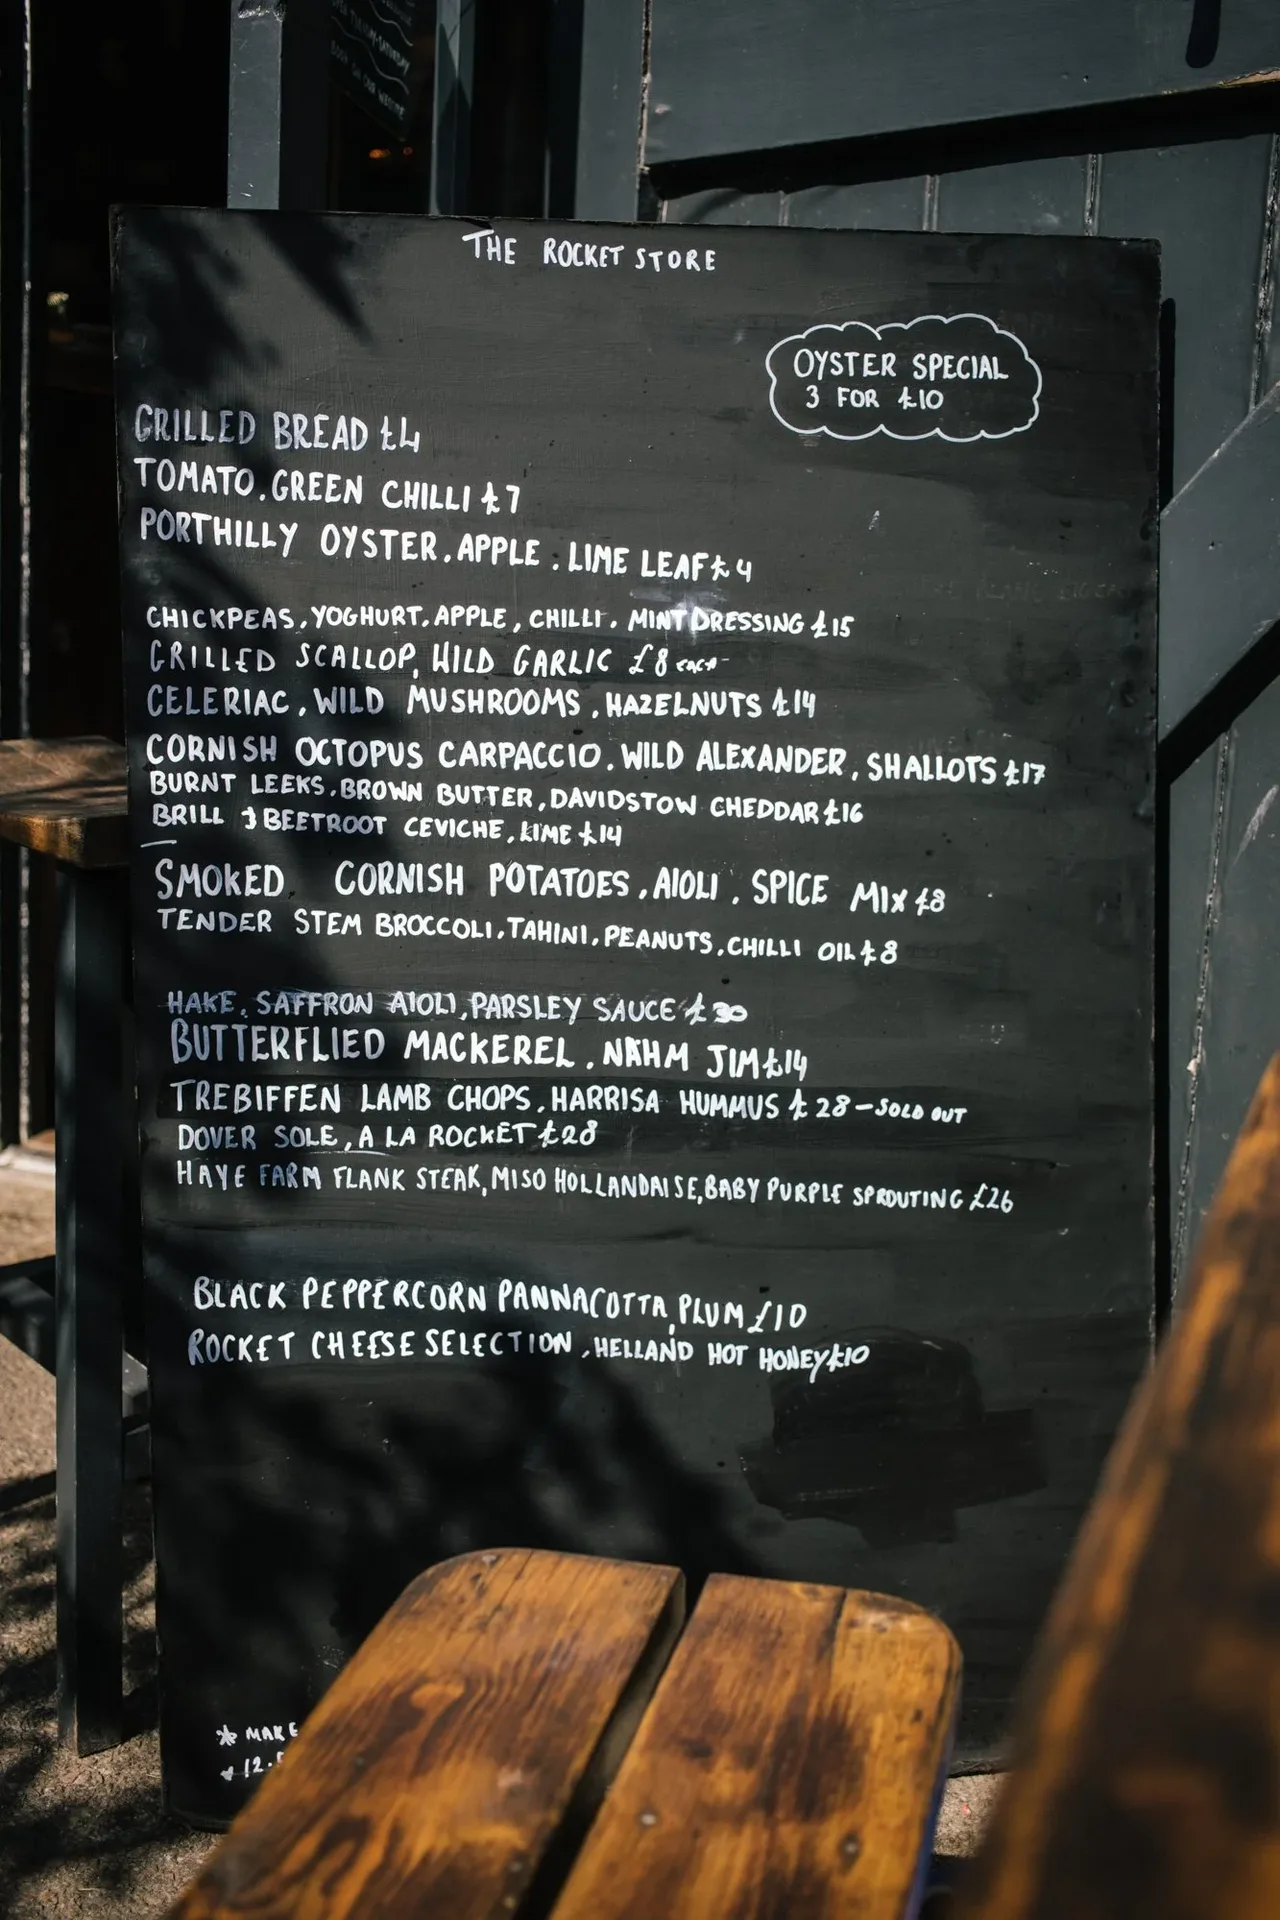 THE ROCKET STORE
OYSTER SPECIAL
3 FOR £10
GRILLED BREAD £4
TOMATO. GREEN CHILLI £7
PORTHILLY OYSTER. APPLE. LIME LEAF £4
CHICKPEAS. YOGHURT. APPLE, CHILLI. MINT DRESSING £15
GRILLED SCALLOP, WILD GARLIC £8 each
CELERIAC. WILD MUSHROOMS. HAZELNUTS £14
CORNISH OCTOPUS CARPACCIO. WILD ALEXANDER, SHALLOTS £17
BURNT LEEKS. BROWN BUTTER, DAVIDSTOW CHEDDAR £16
BRILL & BEETROOT CEVICHE, LIME £14
SMOKED CORNISH POTATOES. AIOLI. SPICE MIX £8
TENDER STEM BROCCOLI. TAHINI. PEANUTS. CHILLI OIL £8
HAKE. SAFFRON AIOLI, PARSLEY SAUCE £30
BUTTERFLIED MACKEREL. NAHM JIM £14
TREBIFFEN LAMB CHOPS. HARRISA HUMMUS £28 - SOLD OUT
DOVER SOLE, A LA ROCKET £28
HAYE FARM FLANK STEAK, MISO HOLLANDAISE, BABY PURPLE SPROUTING £26
BLACK PEPPERCORN PANNACOTTA, PLUM £10
ROCKET CHEESE SELECTION, HELLAND HOT HONEY £10
* MAKE
12.